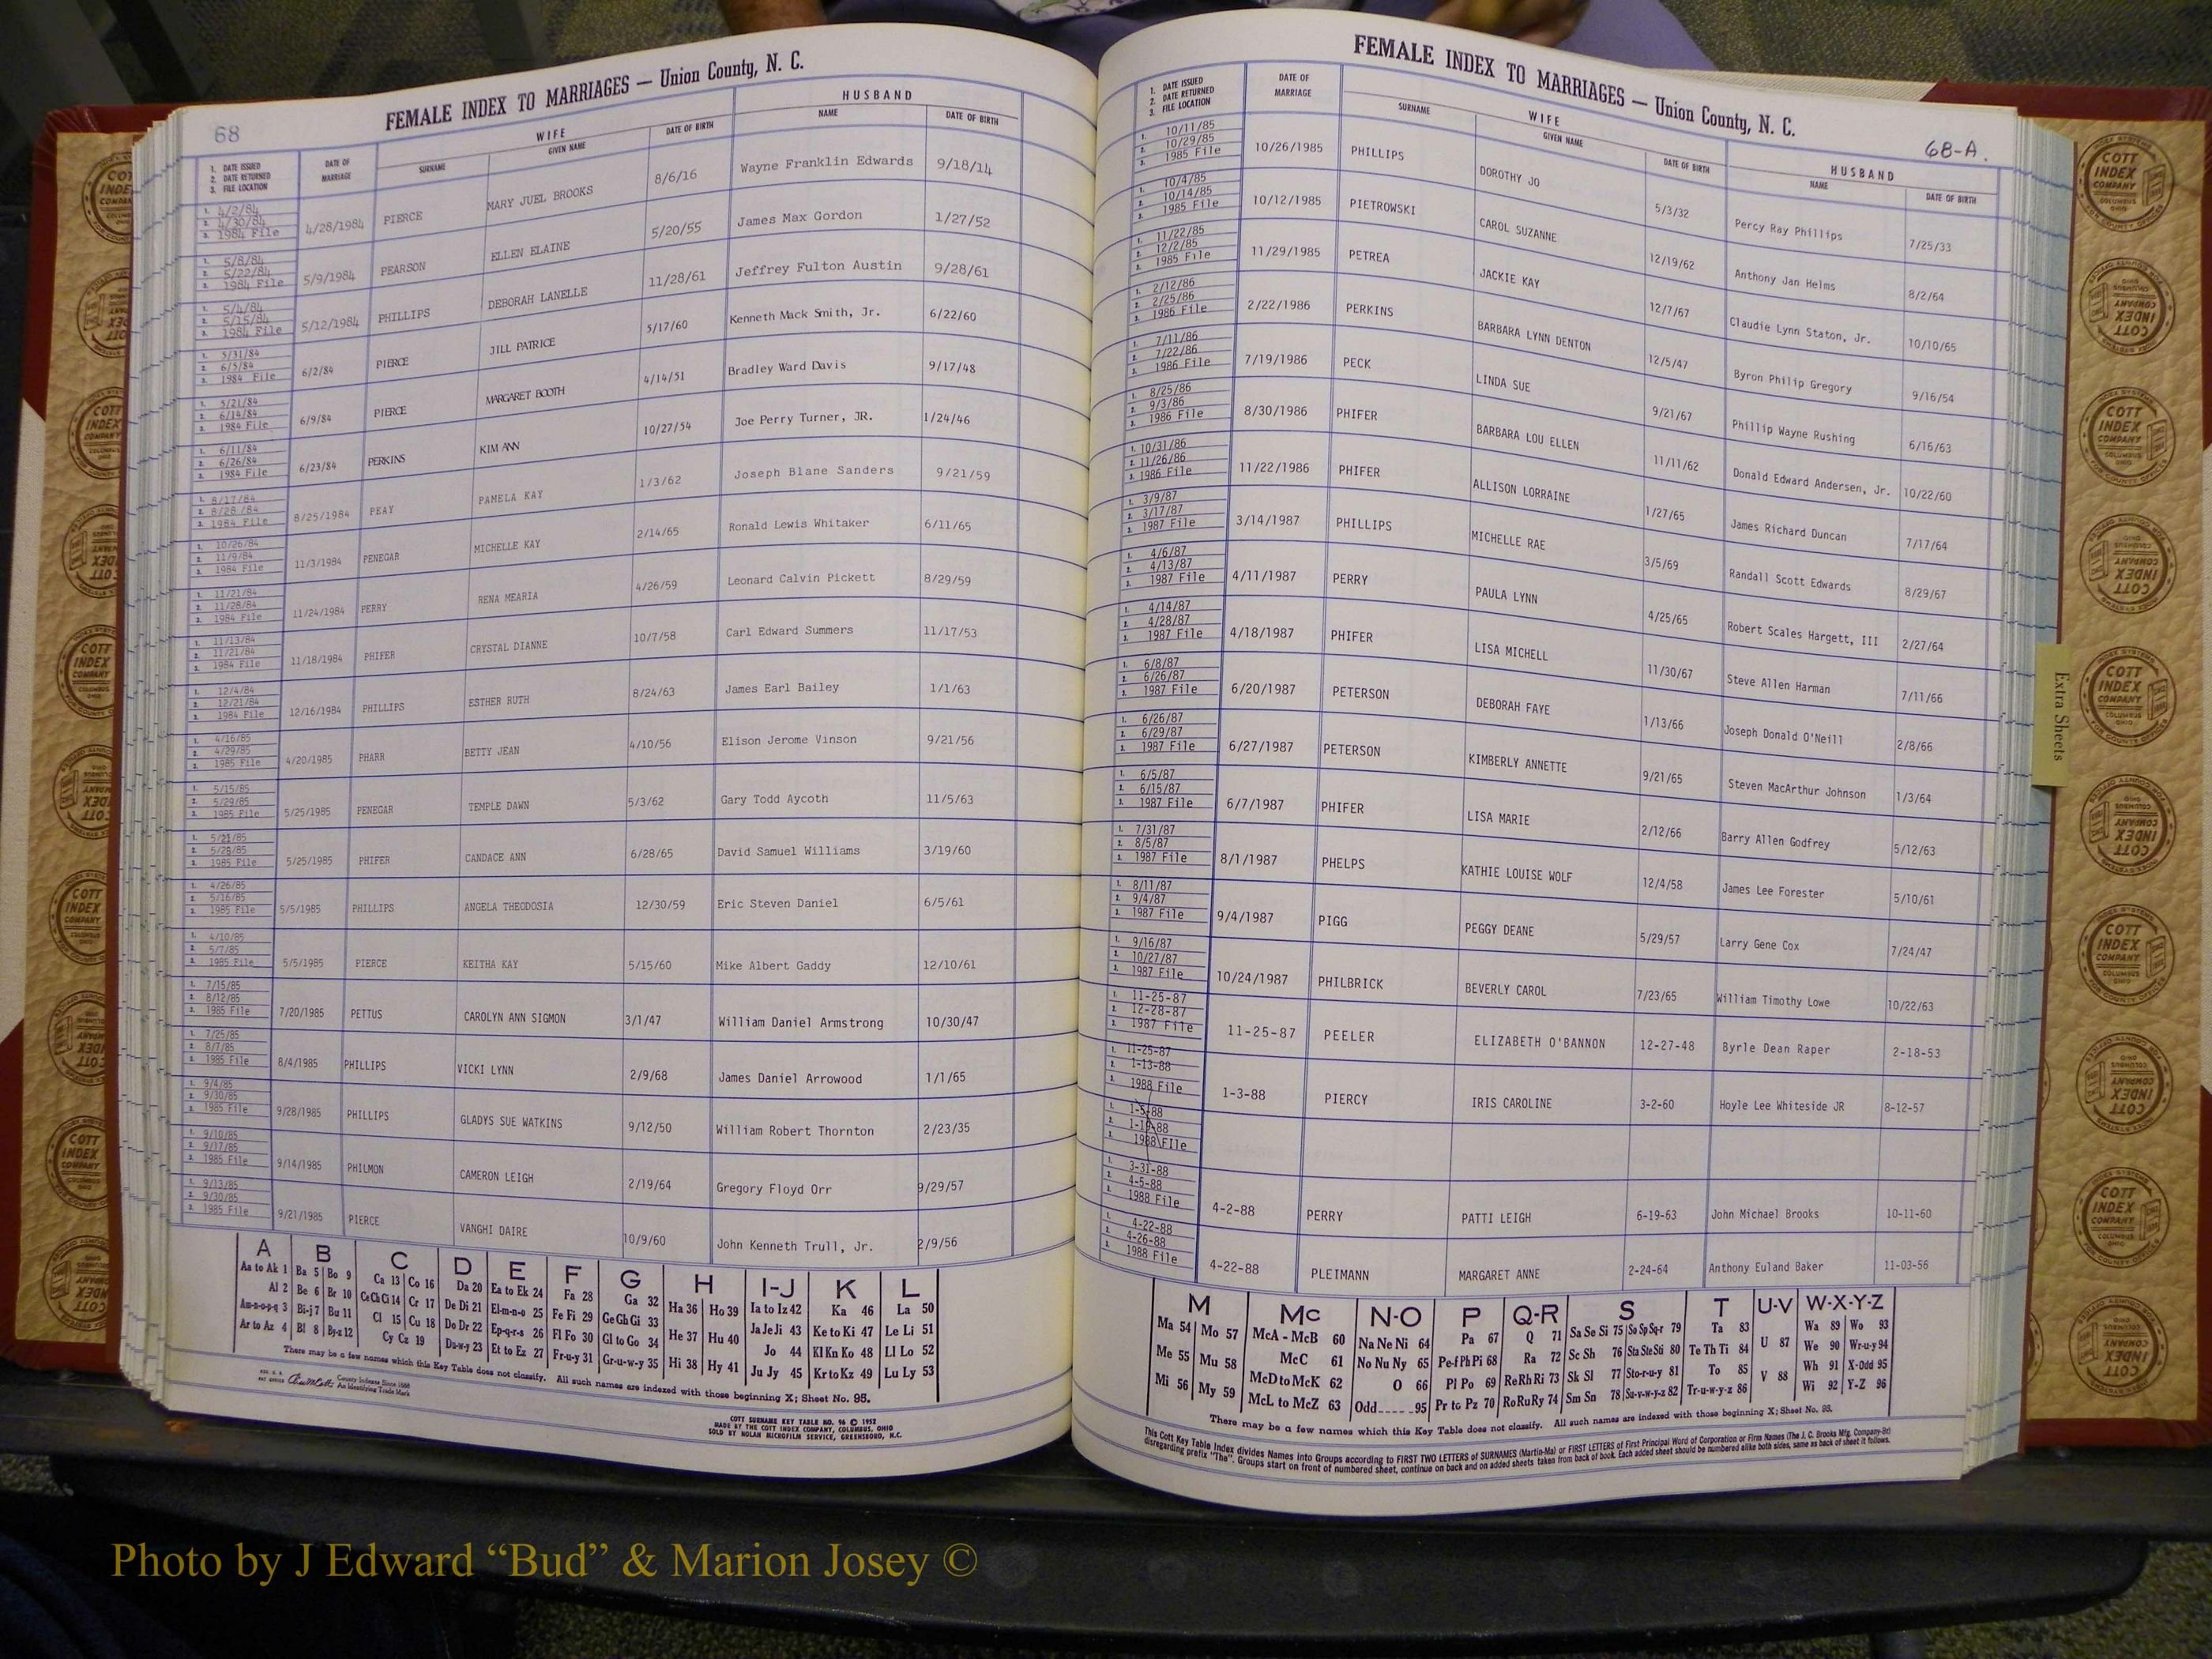 68
FEMALE INDEX TO MARRIAGES — Union County, N. C.
1. DATE ISSUED 2. DATE RETURNED 3. FILE LOCATION
DATE OF MARRIAGE
WIFE
SURNAME GIVEN NAME DATE OF BIRTH
HUSBAND
NAME DATE OF BIRTH
1. 4/2/84 2. 4/30/84 3. 1984 File 4/28/1984 PIERCE MARY JUEL BROOKS 8/6/16 Wayne Franklin Edwards 9/18/14
1. 5/8/84 2. 5/22/84 3. 1984 File 5/9/1984 PEARSON ELLEN ELAINE 5/20/55 James Max Gordon 1/27/52
1. 5/4/84 2. 5/15/84 3. 1984 File 5/12/1984 PHILLIPS DEBORAH LANELLE 11/28/61 Jeffrey Fulton Austin 9/28/61
1. 5/31/84 2. 6/5/84 3. 1984 File 6/2/84 PIERCE JILL PATRICE 5/17/60 Kenneth Mack Smith, Jr. 6/22/60
1. 5/21/84 2. 6/14/84 3. 1984 File 6/9/84 PIERCE MARGARET BOOTH 4/14/51 Bradley Ward Davis 9/17/48
1. 6/11/84 2. 6/26/84 3. 1984 File 6/23/84 PERKINS KIM ANN 10/27/54 Joe Perry Turner, JR. 1/24/46
1. 8/17/84 2. 8/28/84 3. 1984 File 8/25/1984 PEAY PAMELA KAY 1/3/62 Joseph Blane Sanders 9/21/59
1. 10/26/84 2. 11/9/84 3. 1984 File 11/3/1984 PENEGAR MICHELLE KAY 2/14/65 Ronald Lewis Whitaker 6/11/65
1. 11/21/84 2. 11/28/84 3. 1984 File 11/24/1984 PERRY RENA MEARIA 4/26/59 Leonard Calvin Pickett 8/29/59
1. 11/13/84 2. 11/21/84 3. 1984 File 11/18/1984 PHIFER CRYSTAL DIANNE 10/7/58 Carl Edward Summers 11/17/53
1. 12/4/84 2. 12/21/84 3. 1984 File 12/16/1984 PHILLIPS ESTHER RUTH 8/24/63 James Earl Bailey 1/1/63
1. 4/16/85 2. 4/29/85 3. 1985 File 4/20/1985 PHARR BETTY JEAN 4/10/56 Elison Jerome Vinson 9/21/56
1. 5/15/85 2. 5/29/85 3. 1985 File 5/25/1985 PENEGAR TEMPLE DAWN 5/3/62 Gary Todd Aycoth 11/5/63
1. 5/21/85 2. 5/28/85 3. 1985 File 5/25/1985 PHIFER CANDACE ANN 6/28/65 David Samuel Williams 3/19/60
1. 4/26/85 2. 5/16/85 3. 1985 File 5/5/1985 PHILLIPS ANGELA THEODOSIA 12/30/59 Eric Steven Daniel 6/5/61
1. 4/10/85 2. 5/7/85 3. 1985 File 5/5/1985 PIERCE KEITHA KAY 5/15/60 Mike Albert Gaddy 12/10/61
1. 7/15/85 2. 8/12/85 3. 1985 File 7/20/1985 PETTUS CAROLYN ANN SIGMON 3/1/47 William Daniel Armstrong 10/30/47
1. 7/25/85 2. 8/7/85 3. 1985 File 8/4/1985 PHILLIPS VICKI LYNN 2/9/68 James Daniel Arrowood 1/1/65
1. 9/4/85 2. 9/30/85 3. 1985 File 9/28/1985 PHILLIPS GLADYS SUE WATKINS 9/12/50 William Robert Thornton 2/23/35
1. 9/10/85 2. 9/17/85 3. 1985 File 9/14/1985 PHILMON CAMERON LEIGH 2/19/64 Gregory Floyd Orr 9/29/57
1. 9/13/85 2. 9/30/85 3. 1985 File 9/21/1985 PIERCE VANGHI DAIRE 10/9/60 John Kenneth Trull, Jr. 2/9/56
A B C D E F G H I-J K L
Aa to Ak 1 Ba 5 Bo 9 Ca 13 Co 16 Da 20 Ea to Ek 24 Fa 28 Ga 32 Ha 36 Ho 39 Ia to Iz 42 Ka 46 La 50
Al 2 Be 6 Br 10 Ce Ch Ci 14 Cr 17 De Di 21 El-m-n-o 25 Fe Fi 29 Ge Gh Gi 33 He 37 Hu 40 Ja Je Ji 43 Ke to Ki 47 Le Li 51
Am-n-o-p-q 3 Bi-j 7 Bu 11 Cl 15 Cu 18 Do Dr 22 Ep-q-r-s 26 Fl Fo 30 Gl to Go 34 Hi 38 Hy 41 Jo 44 Kl Kn Ko 48 Ll Lo 52
Ar to Az 4 Bl 8 By-z 12 Cy Cz 19 Du-w-y 23 Et to Ez 27 Fr-u-y 31 Gr-u-w-y 35 Ju Jy 45 Kr to Kz 49 Lu Ly 53
There may be a few names which this Key Table does not classify. All such names are indexed with those beginning X; Sheet No. 95.
County Indexes Since 1888
An Identifying Trade Mark
COTT SURNAME KEY TABLE NO. 96 © 1952
MADE BY THE COTT INDEX COMPANY, COLUMBUS, OHIO
SOLD BY NOLAN MICROFILM SERVICE, GREENSBORO, N.C.
FEMALE INDEX TO MARRIAGES — Union County, N. C.
68-A.
1. DATE ISSUED 2. DATE RETURNED 3. FILE LOCATION
DATE OF MARRIAGE
WIFE
SURNAME GIVEN NAME DATE OF BIRTH
HUSBAND
NAME DATE OF BIRTH
1. 10/11/85 2. 10/29/85 3. 1985 File 10/26/1985 PHILLIPS DOROTHY JO 5/3/32 Percy Ray Phillips 7/25/33
1. 10/4/85 2. 10/14/85 3. 1985 File 10/12/1985 PIETROWSKI CAROL SUZANNE 12/19/62 Anthony Jan Helms 8/2/64
1. 11/22/85 2. 12/2/85 3. 1985 File 11/29/1985 PETREA JACKIE KAY 12/7/67 Claudie Lynn Staton, Jr. 10/10/65
1. 2/12/86 2. 2/25/86 3. 1986 File 2/22/1986 PERKINS BARBARA LYNN DENTON 12/5/47 Byron Philip Gregory 9/16/54
1. 7/11/86 2. 7/22/86 3. 1986 File 7/19/1986 PECK LINDA SUE 9/21/67 Phillip Wayne Rushing 6/16/63
1. 8/25/86 2. 9/3/86 3. 1986 File 8/30/1986 PHIFER BARBARA LOU ELLEN 11/11/62 Donald Edward Andersen, Jr. 10/22/60
1. 10/31/86 2. 11/26/86 3. 1986 File 11/22/1986 PHIFER ALLISON LORRAINE 1/27/65 James Richard Duncan 7/17/64
1. 3/9/87 2. 3/17/87 3. 1987 File 3/14/1987 PHILLIPS MICHELLE RAE 3/5/69 Randall Scott Edwards 8/29/67
1. 4/6/87 2. 4/13/87 3. 1987 File 4/11/1987 PERRY PAULA LYNN 4/25/65 Robert Scales Hargett, III 2/27/64
1. 4/14/87 2. 4/28/87 3. 1987 File 4/18/1987 PHIFER LISA MICHELL 11/30/67 Steve Allen Harman 7/11/66
1. 6/8/87 2. 6/26/87 3. 1987 File 6/20/1987 PETERSON DEBORAH FAYE 1/13/66 Joseph Donald O'Neill 2/8/66
1. 6/26/87 2. 6/29/87 3. 1987 File 6/27/1987 PETERSON KIMBERLY ANNETTE 9/21/65 Steven MacArthur Johnson 1/3/64
1. 6/5/87 2. 6/15/87 3. 1987 File 6/7/1987 PHIFER LISA MARIE 2/12/66 Barry Allen Godfrey 5/12/63
1. 7/31/87 2. 8/5/87 3. 1987 File 8/1/1987 PHELPS KATHIE LOUISE WOLF 12/4/58 James Lee Forester 5/10/61
1. 8/11/87 2. 9/4/87 3. 1987 File 9/4/1987 PIGG PEGGY DEANE 5/29/57 Larry Gene Cox 7/24/47
1. 9/16/87 2. 10/27/87 3. 1987 File 10/24/1987 PHILBRICK BEVERLY CAROL 7/23/65 William Timothy Lowe 10/22/63
1. 11-25-87 2. 12-28-87 3. 1987 File 11-25-87 PEELER ELIZABETH O'BANNON 12-27-48 Byrle Dean Raper 2-18-53
1. 11-25-87 2. 1-13-88 3. 1988 File 1-3-88 PIERCY IRIS CAROLINE 3-2-60 Hoyle Lee Whiteside JR 8-12-57
1. 1-5-88 2. 1-19-88 3. 1988 FIle
1. 3-31-88 2. 4-5-88 3. 1988 File 4-2-88 PERRY PATTI LEIGH 6-19-63 John Michael Brooks 10-11-60
1. 4-22-88 2. 4-26-88 3. 1988 File 4-22-88 PLEIMANN MARGARET ANNE 2-24-64 Anthony Euland Baker 11-03-56
M Mc N-O P Q-R S T U-V W-X-Y-Z
Ma 54 Mo 57 McA - McB 60 Na Ne Ni 64 Pa 67 Q 71 Sa Se Si 75 So Sp Sq-r 79 Ta 83 U 87 Wa 89 Wo 93
Me 55 Mu 58 McC 61 No Nu Ny 65 Pe-f Ph Pi 68 Ra 72 Sc Sh 76 Sta Ste Sti 80 Te Th Ti 84 V 88 We 90 Wr-u-y 94
Mi 56 My 59 McD to McK 62 O 66 Pl Po 69 Re Rh Ri 73 Sk Sl 77 Sto-r-u-y 81 To 85 Wh 91 X-Odd 95
McL to McZ 63 Odd 95 Pr to Pz 70 Ro Ru Ry 74 Sm Sn 78 Su-v-w-y-z 82 Tr-u-w-y-z 86 Wi 92 Y-Z 96
There may be a few names which this Key Table does not classify. All such names are indexed with those beginning X; Sheet No. 95.
This Cott Key Table Index divides Names into Groups according to FIRST TWO LETTERS of SURNAMES (Martin-Ma) or FIRST LETTERS of First Principal Word of Corporation or Firm Names (The J. C. Brooks Mfg. Company-Br)
disregarding prefix "The". Groups start on front of numbered sheet, continue on back and on added sheets taken from back of book. Each added sheet should be numbered alike both sides, same as back of sheet it follows.
Extra Sheets
COTT INDEX COMPANY COLUMBUS OHIO
Photo by J Edward “Bud” & Marion Josey ©